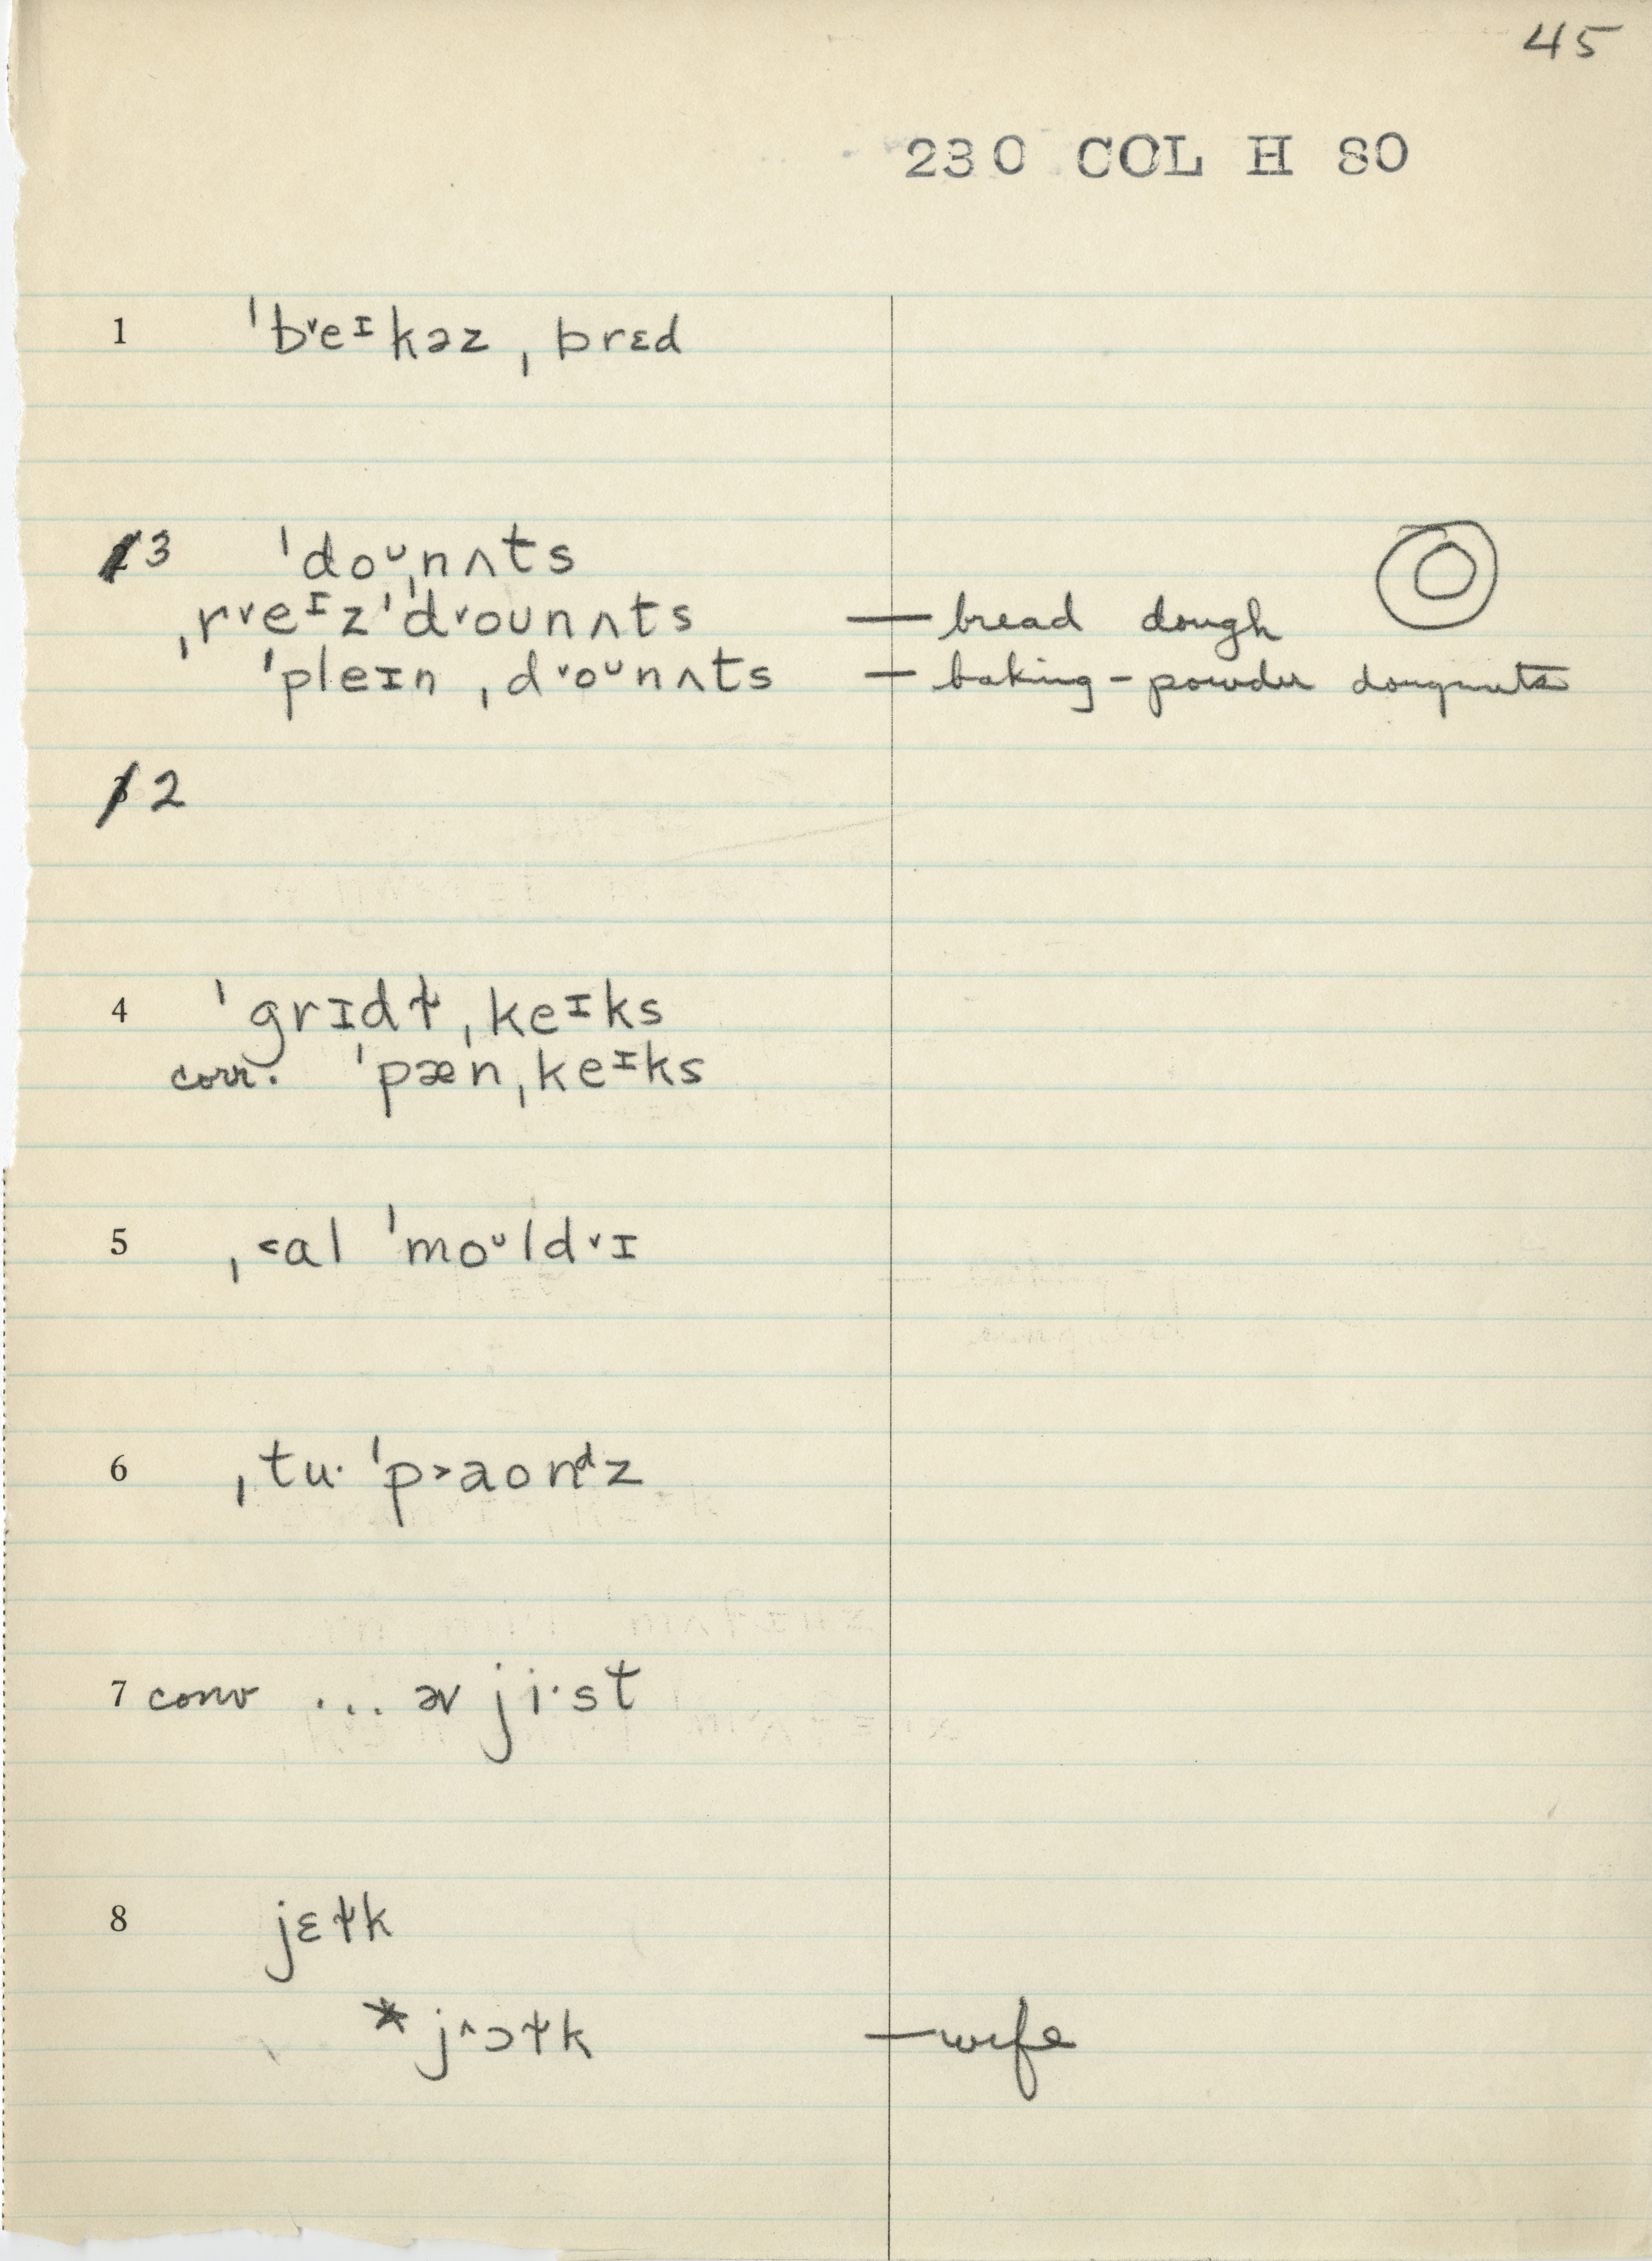 45
230 COL H 80
1 ˈb˅eᶦkəz ˌbrɛd
3 ˈdoᶸˌnʌts
ˌr˅eᶦzˈd˅ounʌts — bread dough
ˈpleɪn ˌd˅oᶸnʌts — baking-powder dougnuts
2
4 ˈgrɪdɫ ˌkeᶦks
corr. ˈpæn ˌkeᶦks
5 ˌ˂al ˈmoᶸld˅ɪ
6 ˌtu· ˈp˃aonᵈz
7 conv ... əv ji·st
8 jɛɫk
* j˄ɔɫk — wife